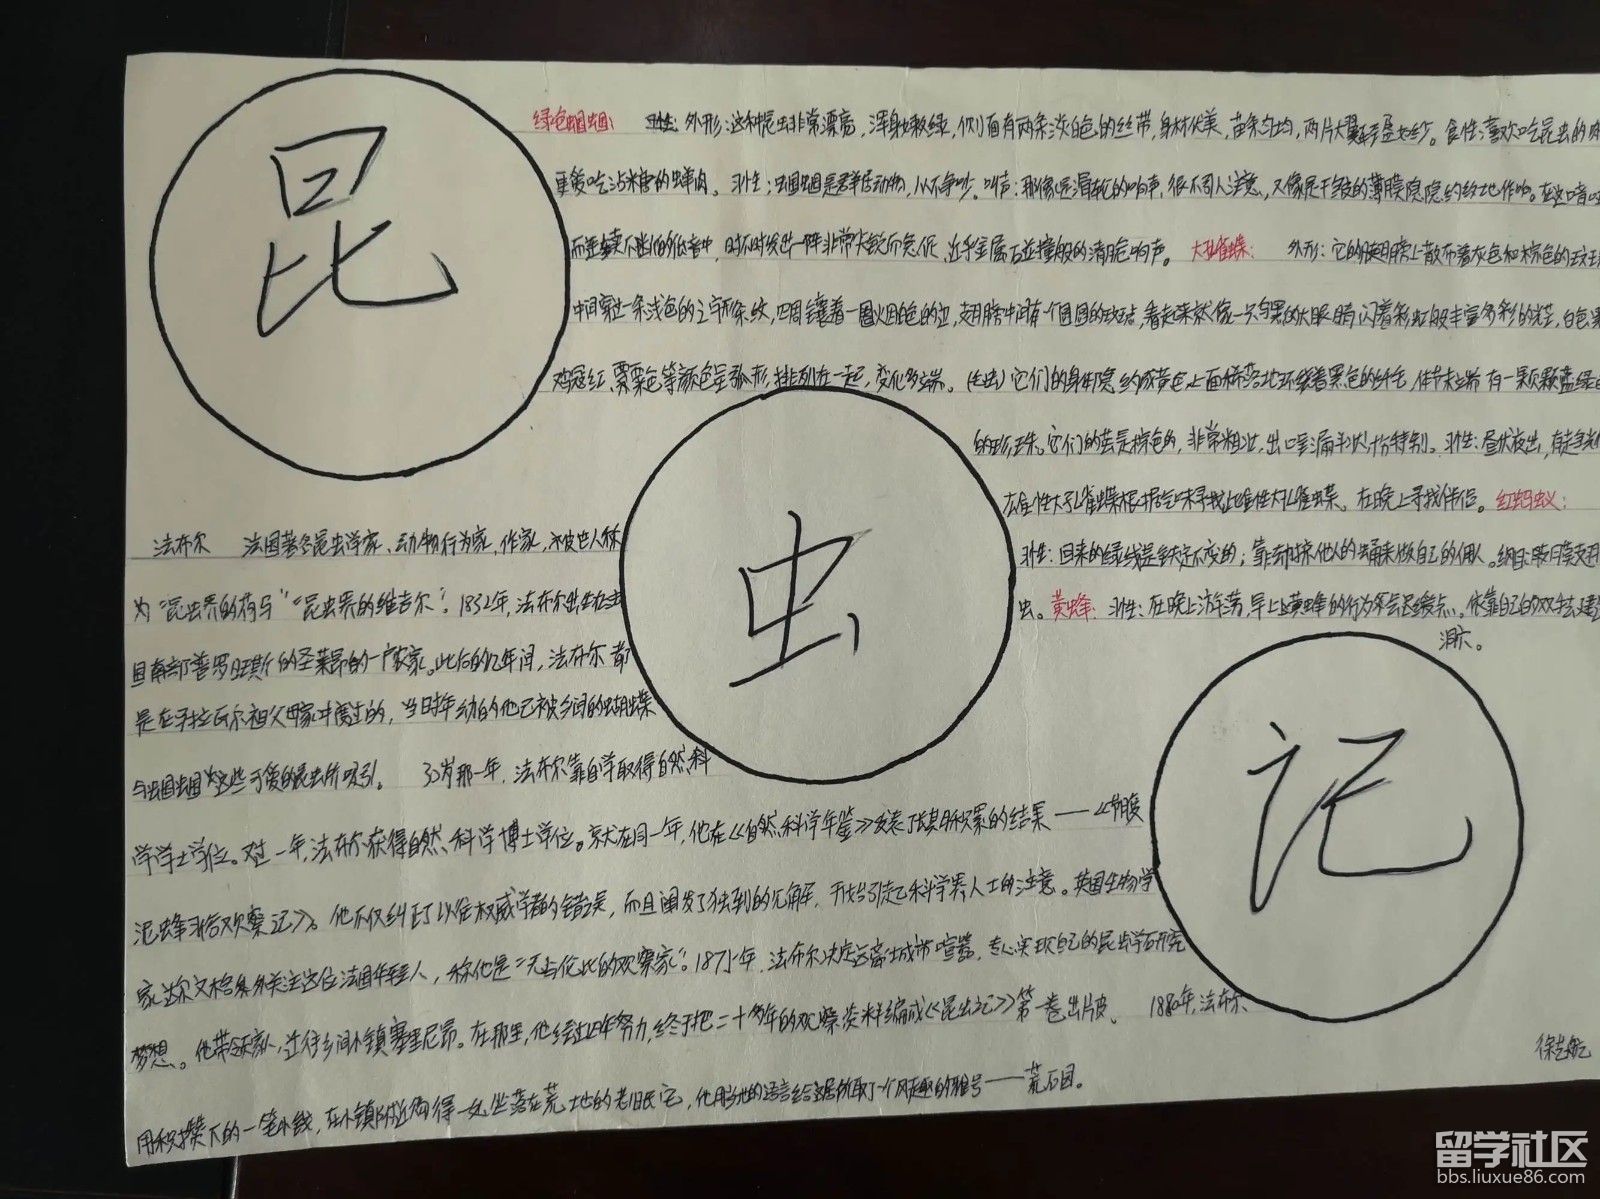 昆
虫
记
绿色蝈蝈: 外形:这种昆虫非常漂亮,浑身嫩绿,侧面有两条淡白色的丝带,身材优美,苗条匀均,两片大翼轻盈如纱。食性:喜欢吃昆虫的肉
更爱吃沾米唐的虫羊肉。习性:蝈蝈是群居动物,从不争吵。叫声:那像是滑轮的响声,很不引人注意,又像是干皱的薄膜隐隐约约地作响。在这喑哑
而连续不断的低音中,时不时发出一阵非常尖锐而急促、近乎金属石碰撞般的清脆响声。 大孔雀蝶: 外形:它的腿翅膀上散布着灰色和棕色的斑
中间穿过一条浅色的之字形条纹,四周镶着一圈火因色的边,翅膀中间有一个圆圆的斑点,看起来就像一只乌黑的大眼睛闪着彩虹般丰富多彩的光芒,白色
鸡冠红、栗色等颜色呈弧形,排列在一起,变化多端。(生虫)它们的身体隐约成黄色上面稀落地环绕着黑色的纤毛,体节末端有一颗颗蓝绿
的珍珠。它们的茧是棕色的,非常粗壮,出口呈漏斗状十分特别。习性:昼伏夜出,有趋光
在雄性大孔雀蝶根据气味寻找上雌性大孔雀蝶。在晚上寻找伴侣。红蚂蚁:
习性:回来的路线是铁定不变的;靠劫掠他人的蛹来做自己的佣人。纲目:
虫。黄蜂: 习性:在晚上游荡,早上黄蜂的行为不会迟缓点。依靠自己的双手去建
消亡。
法布尔 法国著名昆虫学家、动物行为家,作家,被世人称
为“昆虫界的荷马”“昆虫界的维吉尔”。1832年,法布尔出生在法
国南部普罗旺斯的圣莱昂的一户农家。此后的几年间,法布尔都
是在马拉瓦尔祖父母家中度过的,当时年幼的他已被乡间的蝴蝶
与蝈蝈这些可爱的昆虫所吸引。 30岁那一年,法布尔靠自学取得自然科
学学士学位。又过一年,法布尔获得自然科学博士学位。就在同一年,他在《自然科学年鉴》发表了长期积累的结果——《节腹
泥蜂习俗观察记》。他不仅纠正了以往权威学者的错误,而且阐发了独到的见解,开始引起了科学界人士的注意。英国生物学
家达尔文格外关注这位法国年轻人,称他是“无与伦比的观察家”。187年,法布尔决定远离城市喧嚣,专心实现自己的昆虫学研究
梦想。他带领家人,迁往乡间小镇塞里尼昂。在那里,他经过四年努力,终于把二十多年的观察资料编成《昆虫记》第一卷出版。 1880年,法布尔
用积攒下的一笔小钱,在小镇附近购得一处坐落在荒地的老旧民宅,他用当地的语言给居所取了一个风趣的雅号——荒石园。
留学社区
bbs.liuxue86.com